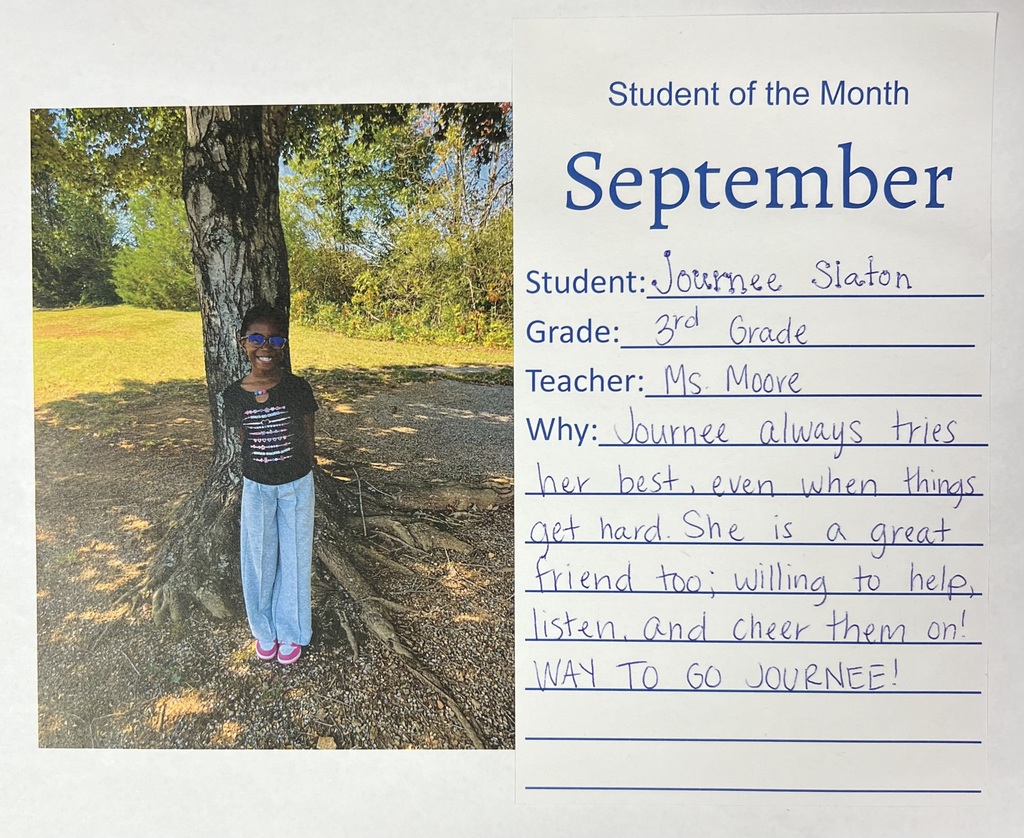 Student of the Month
September
Student: Journee Slaton
Grade: 3rd Grade
Teacher: Ms. Moore
Why: Journee always tries
her best, even when things
get hard. She is a great
friend too; willing to help,
listen, and cheer them on!
WAY TO GO JOURNEE!